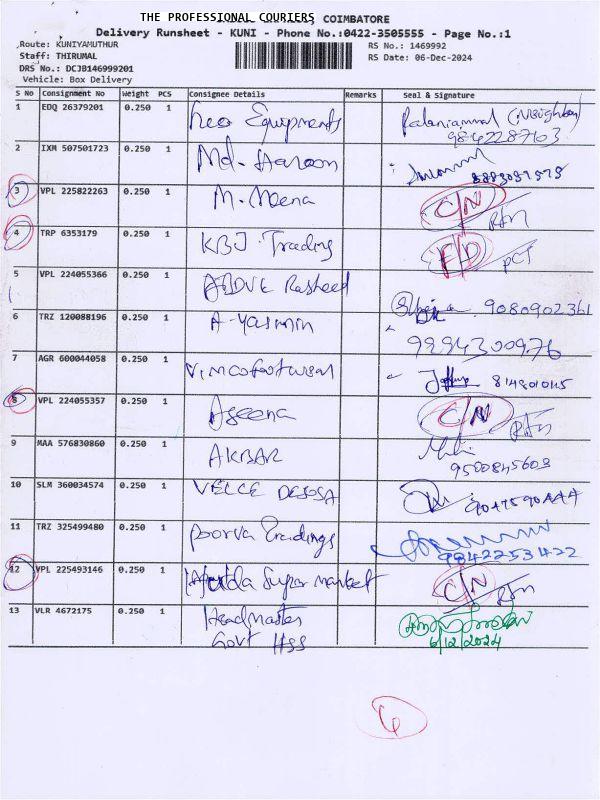 THE PROFESSIONAL COURIERS COIMBATORE
Delivery Runsheet - KUNI - Phone No.:0422-3505555 - Page No.:1
Route: KUNIYAMUTHUR RS No.: 1469992
Staff: THIRUMAL RS Date: 06-Dec-2024
DRS No.: DCJB146999201
Vehicle: Box Delivery
S No Consignment No Weight PCS Consignee Details Remarks Seal & Signature
1 EDQ 26379201 0.250 1 Equipments Palaniammal
9842287103
2 IXM 507501723 0.250 1 Md. Haroon
3 VPL 225822263 0.250 1 M. Meena C/N RTN
4 TRP 6353179 0.250 1 KBJ Trading F/D PCT
5 VPL 224055366 0.250 1 Rasheed 9080902361
6 TRZ 120088196 0.250 1 A-Yasmin
7 AGR 600044058 0.250 1
8 VPL 224055357 0.250 1 Aseena C/N RTN
9 MAA 576830860 0.250 1 AKBAR
9500845603
10 SLM 360034574 0.250 1 VELCE DESOSA
11 TRZ 325499480 0.250 1 Poorva Tradings
9842253422
12 VPL 225493146 0.250 1 Super market C/N RTN
13 VLR 4672175 0.250 1 Headmaster
Govt HSS 6/12/2024